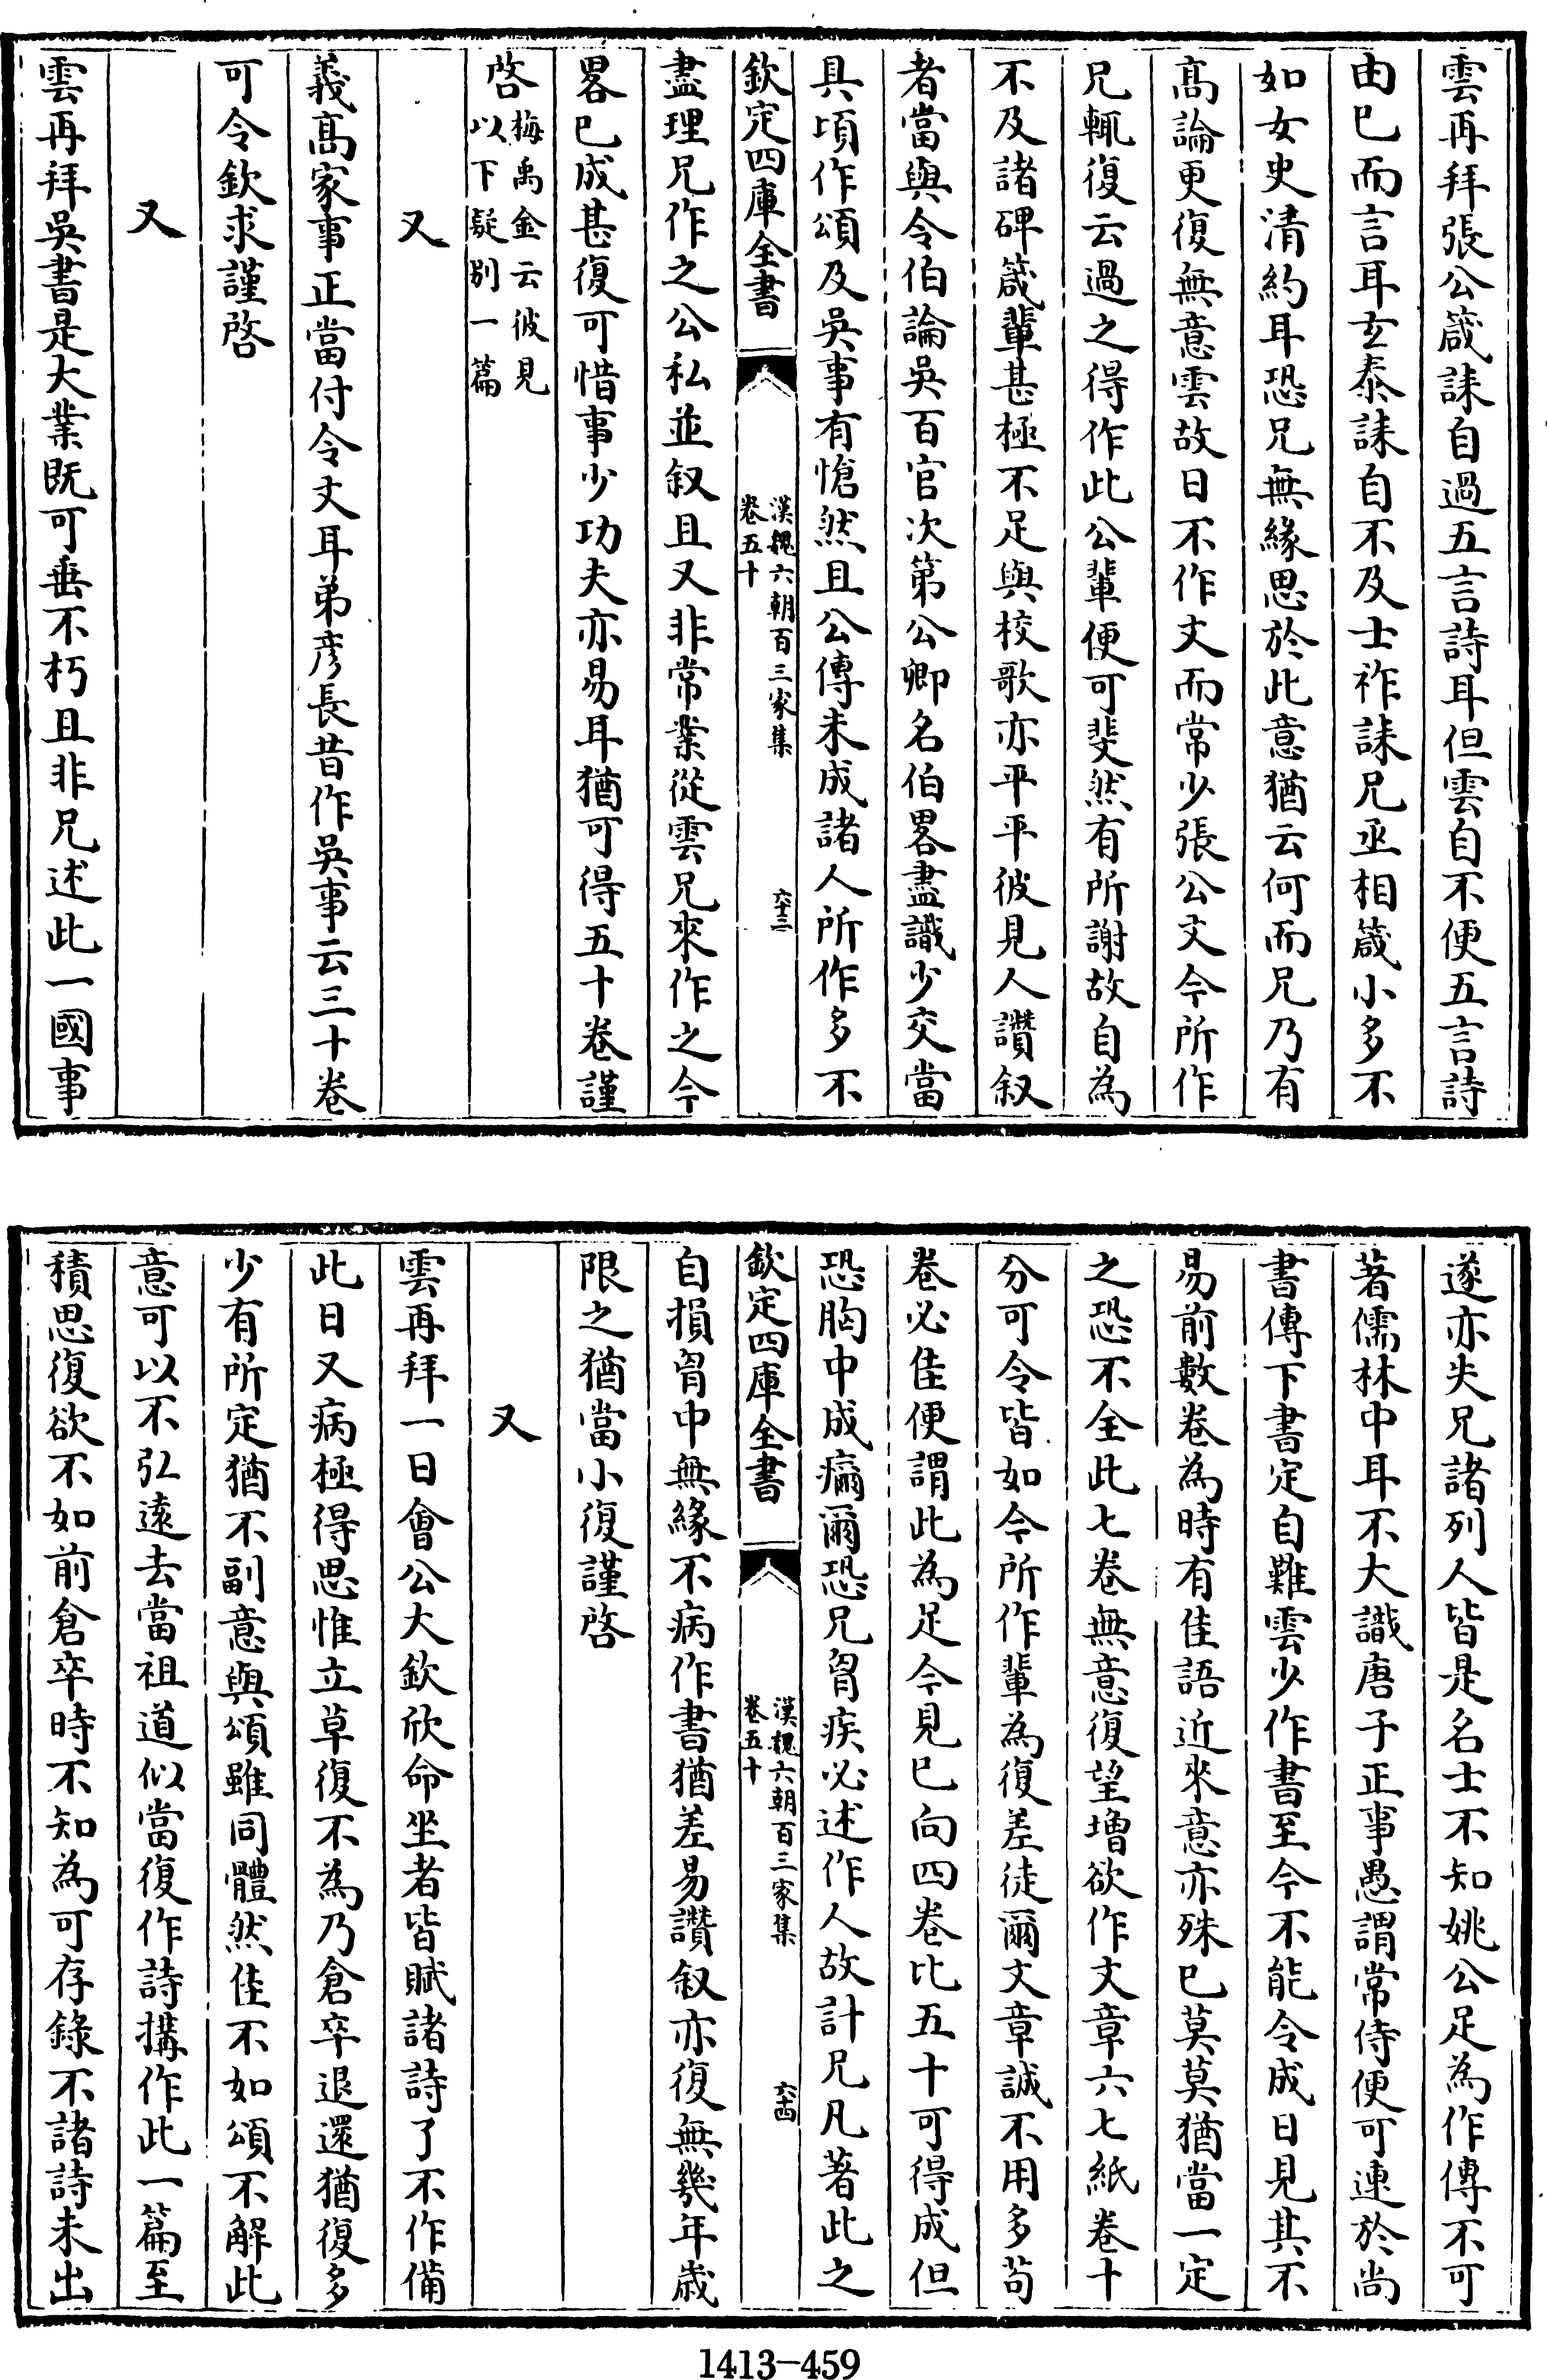 雲再拜張公箴誄自過五言詩耳但雲自不便五言詩
由已而言耳玄泰誄自不及士祚誄兄丞相箴小多不
如女史清約耳恐兄無緣思於此意猶云何而兄乃有
髙論更復無意雲故日不作文而常少張公文今所作
兄輒復云過之得作此公輩便可斐然有所謝故自為
不及諸碑箴輩甚極不足與校歌亦平平彼見人讚叙
者當與令伯論吳百官次第公卿名伯畧盡識少交當
具頃作頌及吳事有愴然且公傳未成諸人所作多不
欽定四庫全書
漢魏六朝百三家集
卷五十
六十三
盡理兄作之公私並叙且又非常業從雲兄來作之今
畧已成甚復可惜事少功夫亦易耳猶可得五十卷謹
啓
梅禹金云彼見
以下疑別一篇
又
義髙家事正當付令文耳弟彦長昔作吳事云三十卷
可令欽求謹啓
又
雲再拜吳書是大業既可垂不朽且非兄述此一國事
遂亦失兄諸列人皆是名士不知姚公足為作傳不可
著儒林中耳不大識唐子正事愚謂常侍便可連於尚
書傳下書定自難雲少作書至今不能令成日見其不
易前數卷為時有佳語近來意亦殊已莫莫猶當一定
之恐不全此七卷無意復望增欲作文章六七紙卷十
分可令皆如今所作輩為復差徒爾文章誠不用多苟
卷必佳便謂此為足今見已向四卷比五十可得成但
恐胸中成痟爾恐兄胷疾必述作人故計兄凡著此之
欽定四庫全書
漢魏六朝百三家集
卷五十
六十四
自損胷中無緣不病作書猶差易讚叙亦復無幾年歲
限之猶當小復謹啓
又
雲再拜一日會公大欽欣命坐者皆賦諸詩了不作備
此日又病極得思惟立草復不為乃倉卒退還猶復多
少有所定猶不副意與頌雖同體然佳不如頌不解此
意可以不弘遠去當祖道似當復作詩搆作此一篇至
積思復欲不如前倉卒時不知為可存錄不諸詩未出
1413-459